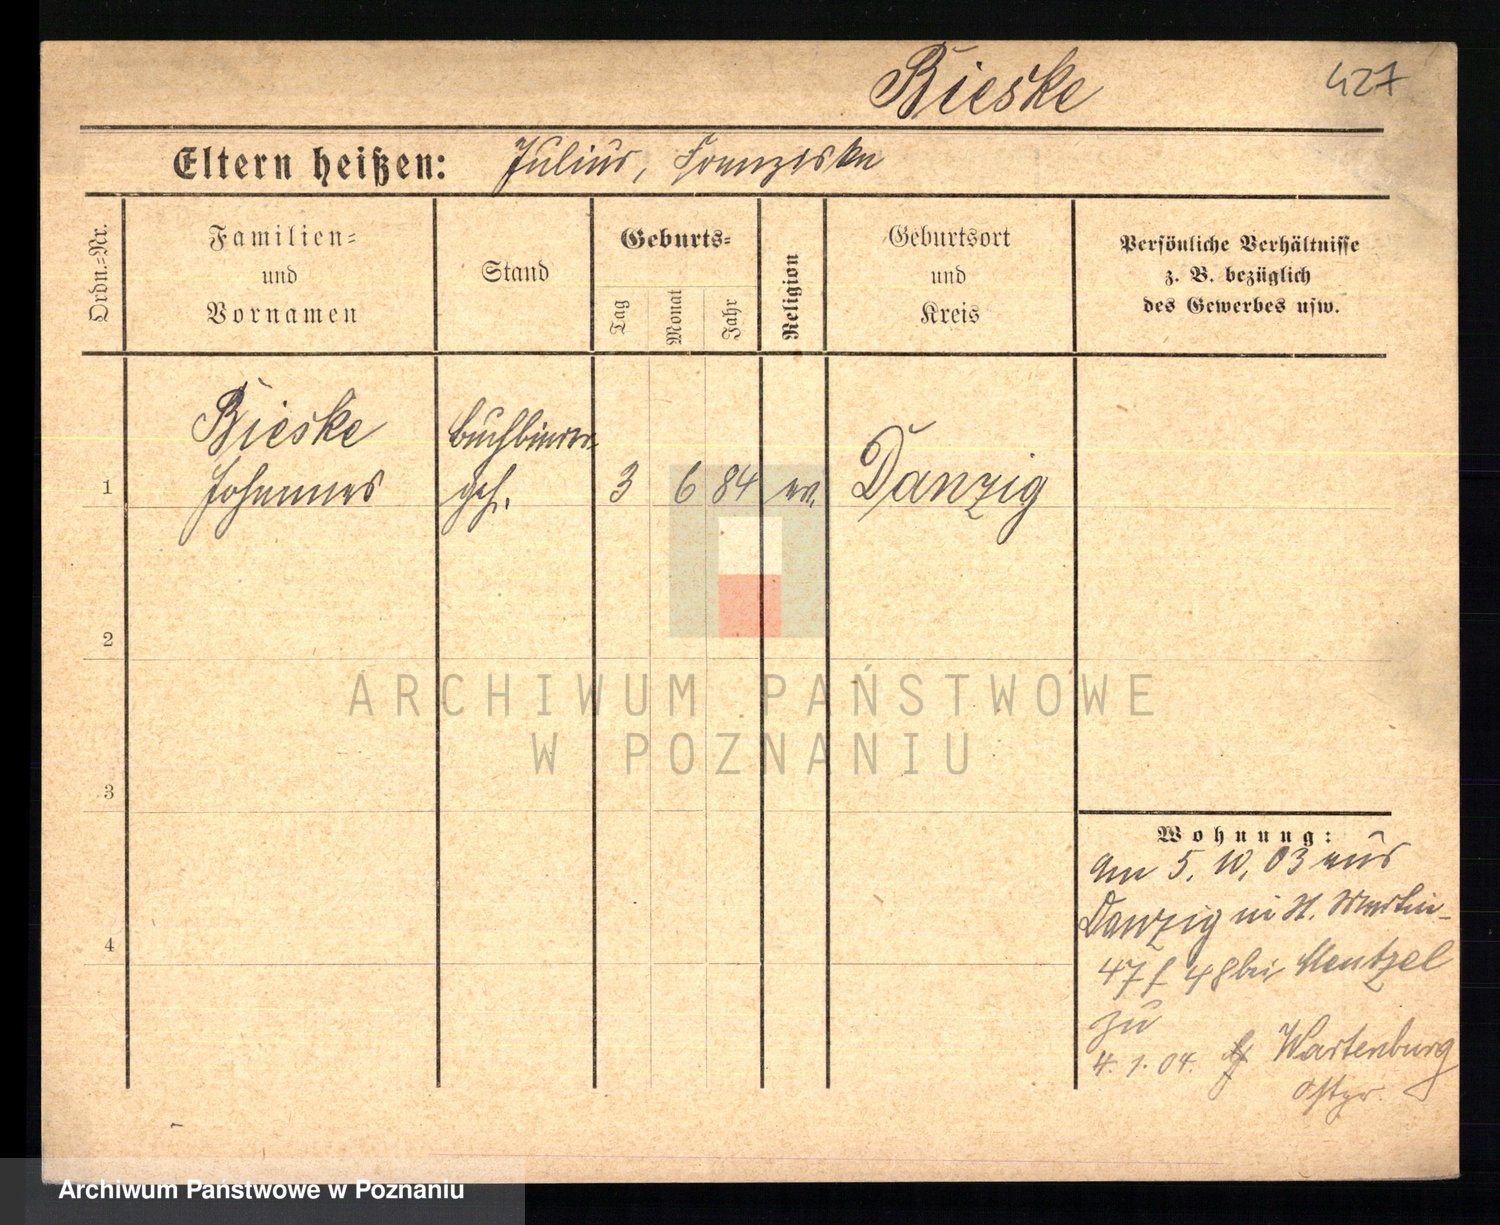 Bieske
427
Eltern heißen: Julius, Franziska
Ordn.-Nr.
Familien- und Vornamen
Stand
Geburts-
Tag
Monat
Jahr
Religion
Geburtsort und Kreis
Persönliche Verhältnisse
z. B. bezüglich
des Gewerbes usw.
Bieske
Johannes
Buchbinder-
geh.
1
3 6 84 ev. Danzig
2
ARCHIWUM PAŃSTWOWE
W POZNANIU
3
Wohnung:
Am 5. 10. 03 aus
Danzig in St. Martin-
47 bei Mentzel
zu
4. 1. 04. Wartenburg
Ostpr.
4
Archiwum Państwowe w Poznaniu